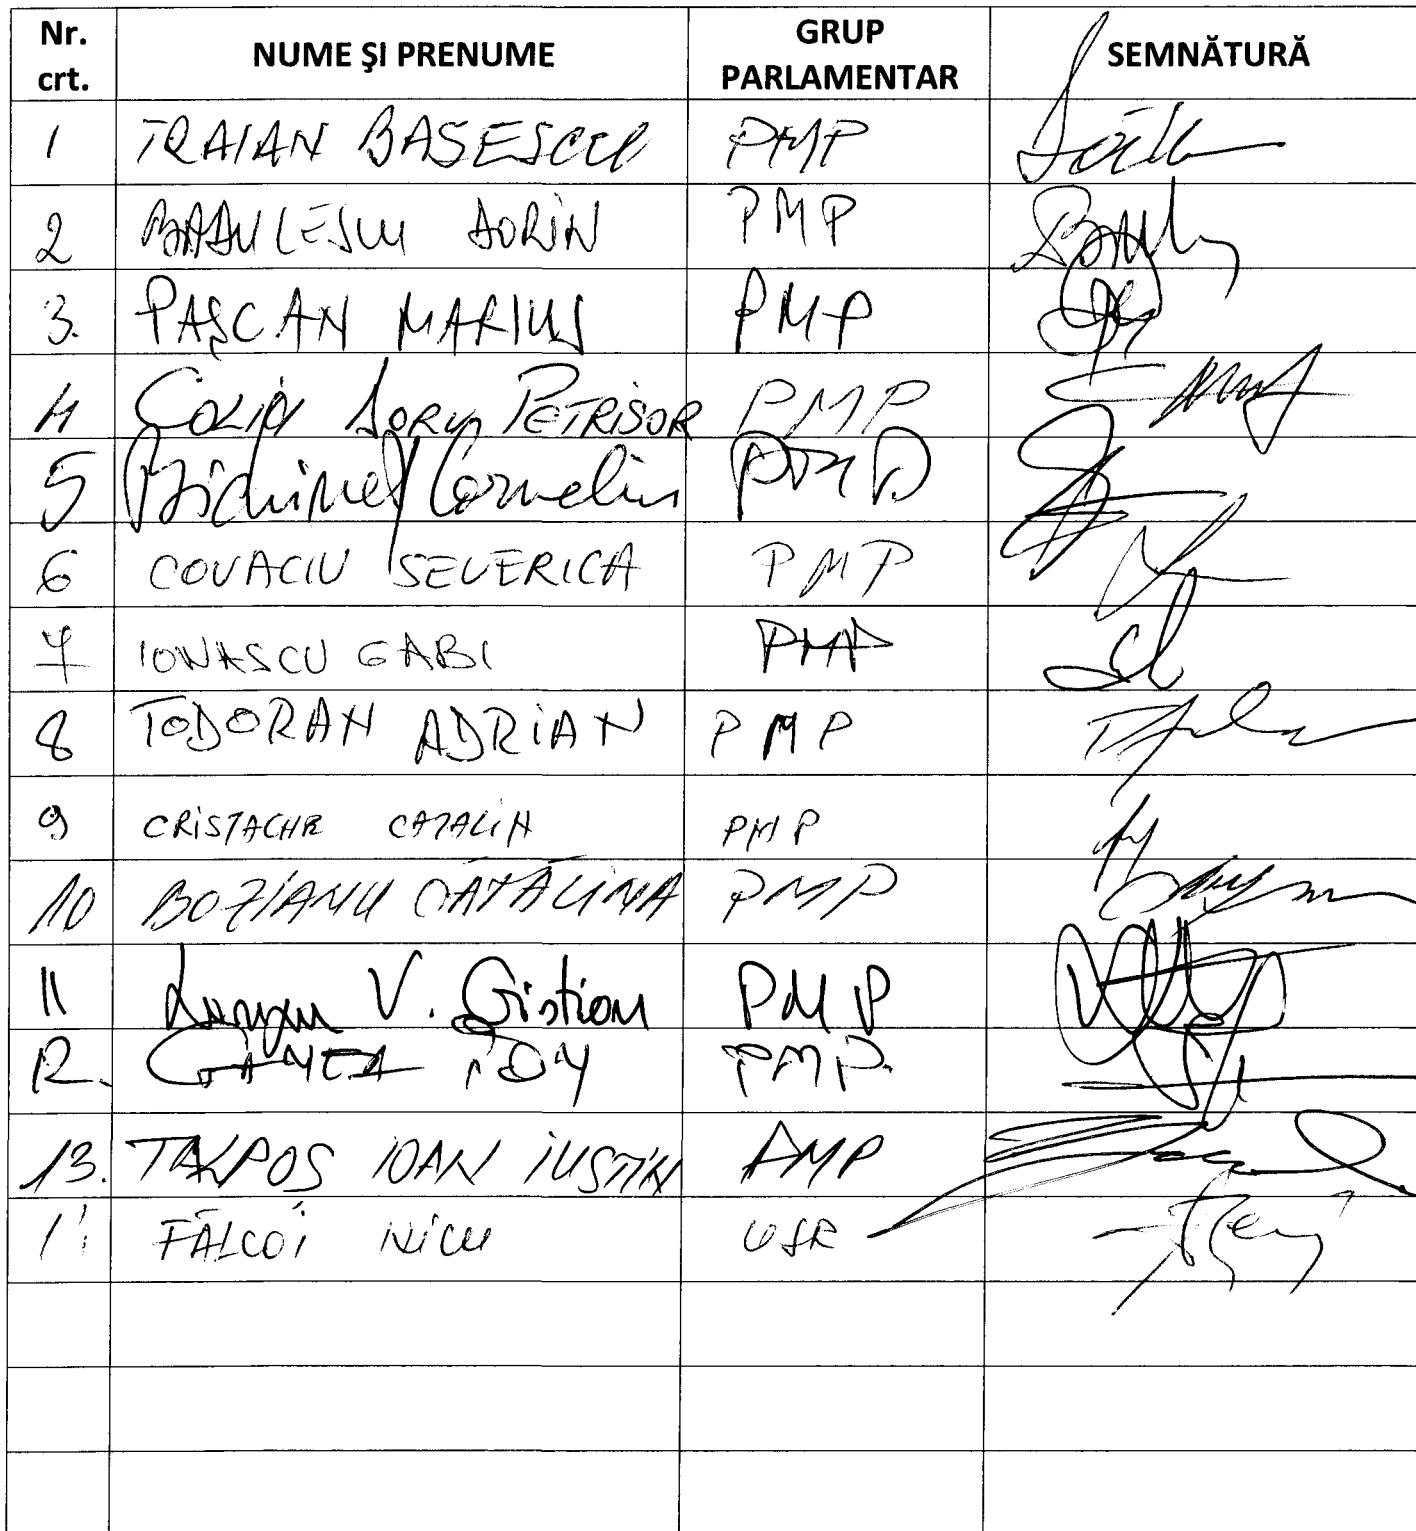 Nr. crt. NUME ŞI PRENUME GRUP PARLAMENTAR SEMNĂTURĂ
1 TRAIAN BASESCU PMP
2 BADULESCU DORIN PMP
3. PAŞCAN MARIUS PMP
4 COLIN DORU PETRISOR PMP
5 Bichinet Corneliu PMP
6 COVACIU SEVERICA PMP
7 IONASCU GABI PMP
8 TODORAN ADRIAN PMP
9 CRISTACHE CATALIN PMP
10 BOZIANU CĂTĂLINA PMP
11 V. Cristian PMP
12. GANEA ION PMP.
13. TALPOŞ IOAN IUSTIN PMP
FĂLCOI NICU USR